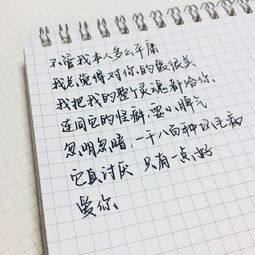 不管我本人多么平庸
我总觉得对你的爱很美
我把我的整个灵魂都给你、
连同它的怪癖，耍小脾气
忽明忽暗，一千八百种坏毛病
它真讨厌 只有一点好
爱你。